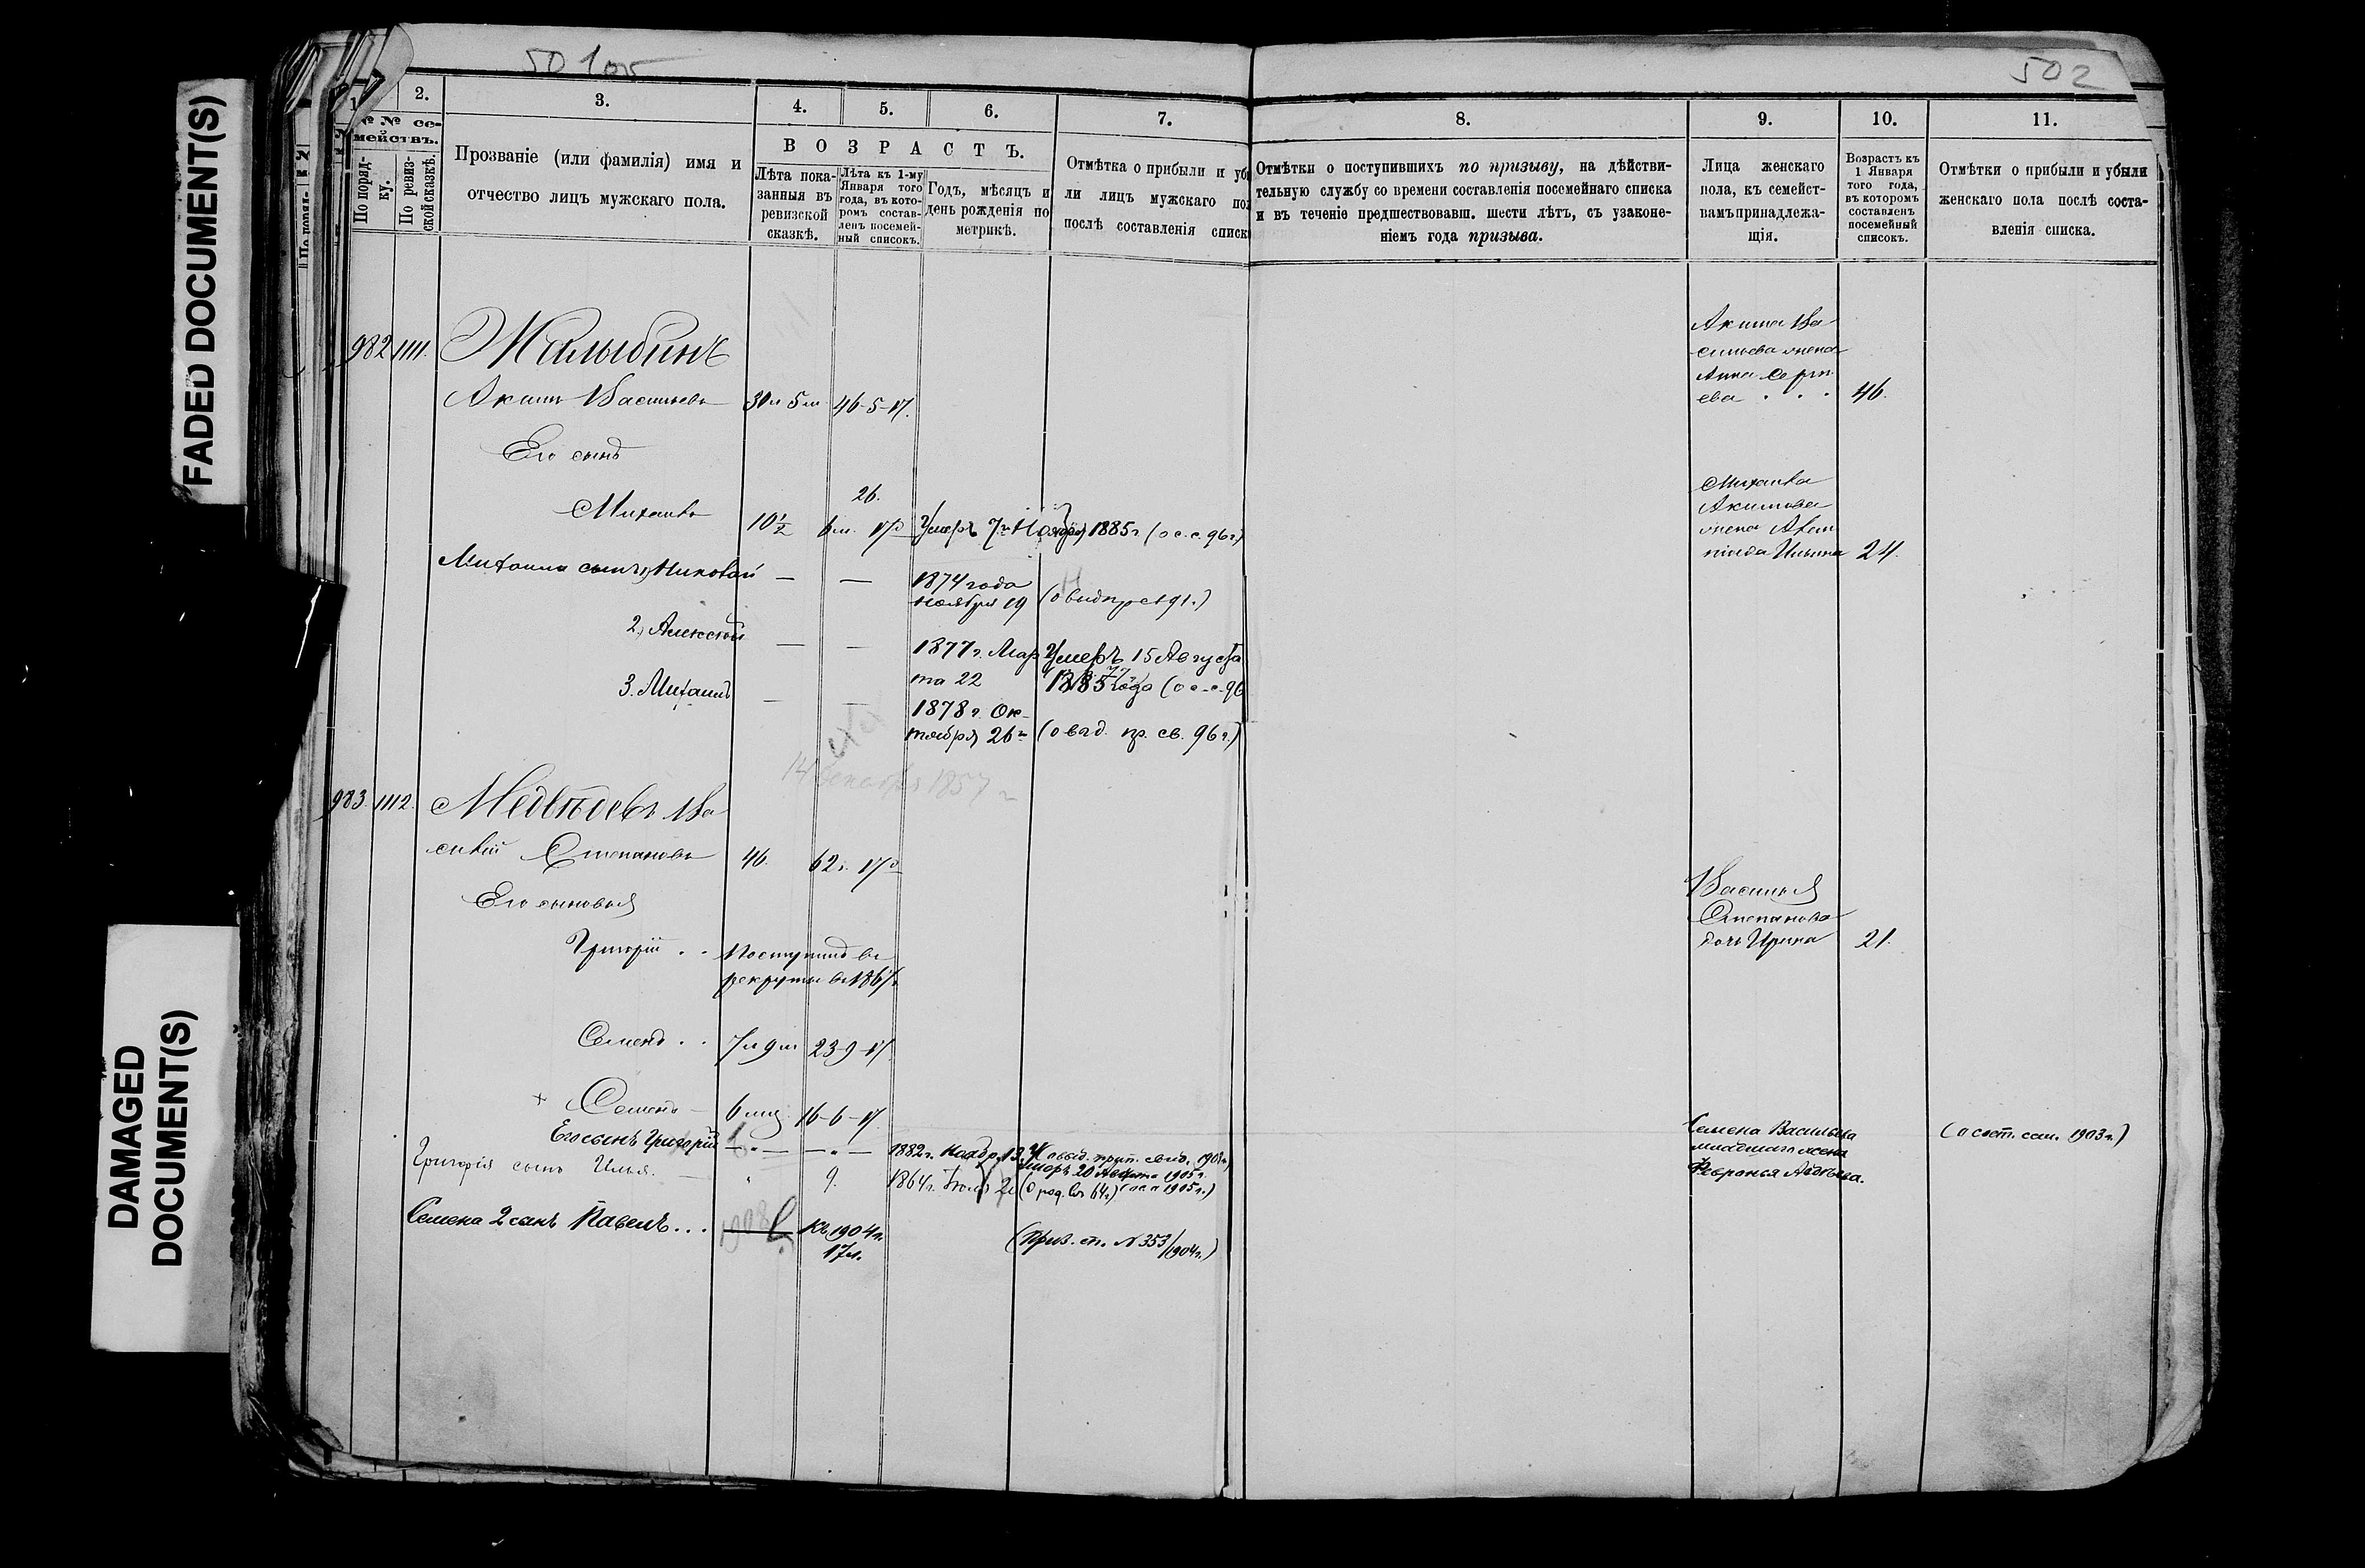 FADED DOCUMENT(S)
DAMAGED
DOCUMENT(S)
501об
502
1. 2. 3. 4. 5. 6. 7. 8. 9. 10. 11.
№ № се-
мействъ.
По поряд-
ку.
По ревиз-
ской сказкѣ.
Прозваніе (или фамилія) имя и
отчество лицъ мужскаго пола.
ВОЗРАСТЪ.
Лѣта пока-
занныя въ
ревизской
сказкѣ.
Лѣта къ 1-му
Января того
года, въ кото-
ромъ состав-
ленъ посемей-
ный список.
Годъ, мѣсяцъ и
день рожденія по
метрикѣ.
Отмѣтка о прибыли и уб
ли лицъ мужскаго по
послѣ составленія списк
Отмѣтки о поступившихъ по призыву, на дѣйстви-
тельную службу со времени составленія посемейнаго списка
и въ теченіе предшествовавш. шести лѣтъ, съ узаконе-
ніемъ года призыва.
Лица женскаго
пола, къ семейст-
вамъ принадлежа-
щія.
Возрастъ къ
1 Января
того года,
въ которомъ
составленъ
посемейный
списокъ.
Отмѣтки о прибыли и убыли
женскаго пола послѣ соста-
вленія списка.
982 1111. Малыбинъ
Акимъ Васильевъ 30 л 5 м 46-5-17.
Акима Ва
сильева жена
Анна Серге
ева . . . 46.
Его сынъ
Михаилъ 10½ 26.
6 м. 17 д Умеръ 7го Ноября 1885 г (о с. с. 96 г)
Михаила
Акимова
жена
Ильина 24.
Михаила сынъ 1, Николай — — 1874 года
ноября 19
2, Алексѣй — — 1877 г. Мар
та 22
Умеръ 15 Августа
1885 года (о с. с. 96
3. Михаилъ — — 1878 г. Ок-
тября 26го (о выд. пр. св. 96 г.)
14 декабря 1857 г
983. 1112. Медвѣдевъ Ва
силій Степановъ 46. 62 г. 17 д
Его сыновья
Григорій . . Поступилъ въ
рекруты въ
Василья
Степанова
дочь Ирина 21.
Семенъ . . 7 л 9 м 23-9-17
Семенъ — 6 мц 16-6-17
Его сынъ Григорій — „ — — „ — 1882 г. Ноябр. 13
Умеръ 20 Августа 1905 г.
Григорія сынъ Илья. — „ 9. 1864 г. Іюля 20
Семена 2 сынъ Павелъ . . . Къ 1904 г.
17 л.
(Приз. сп. № 353/1904 г.)
Семена Васильева
младшаго жена
Февронья Авдѣева.
(о сост. сем. 1903 г.)